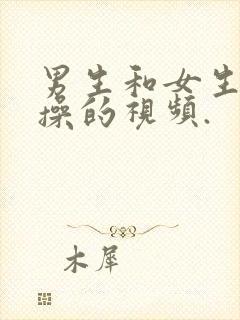 男生和女生
操的視頻.
木犀